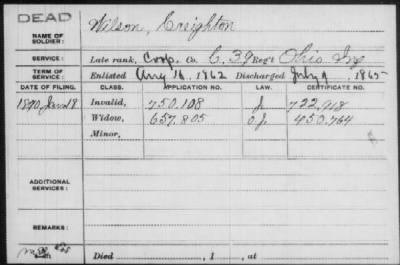 DEAD
NAME OF SOLDIER: Wilson, Creighton
SERVICE: Late rank, Corp. Co. C. 39 Reg't Ohio Inf
TERM OF SERVICE: Enlisted Aug 16, 1862 Discharged July 9, 1865
DATE OF FILING. CLASS. APPLICATION NO. LAW. CERTIFICATE NO.
1890 Jan 18 Invalid, 750.108 J 722.918
Widow, 657.805 O.J. 450.764
Minor,
ADDITIONAL SERVICES:
REMARKS:
Died , 1 , at